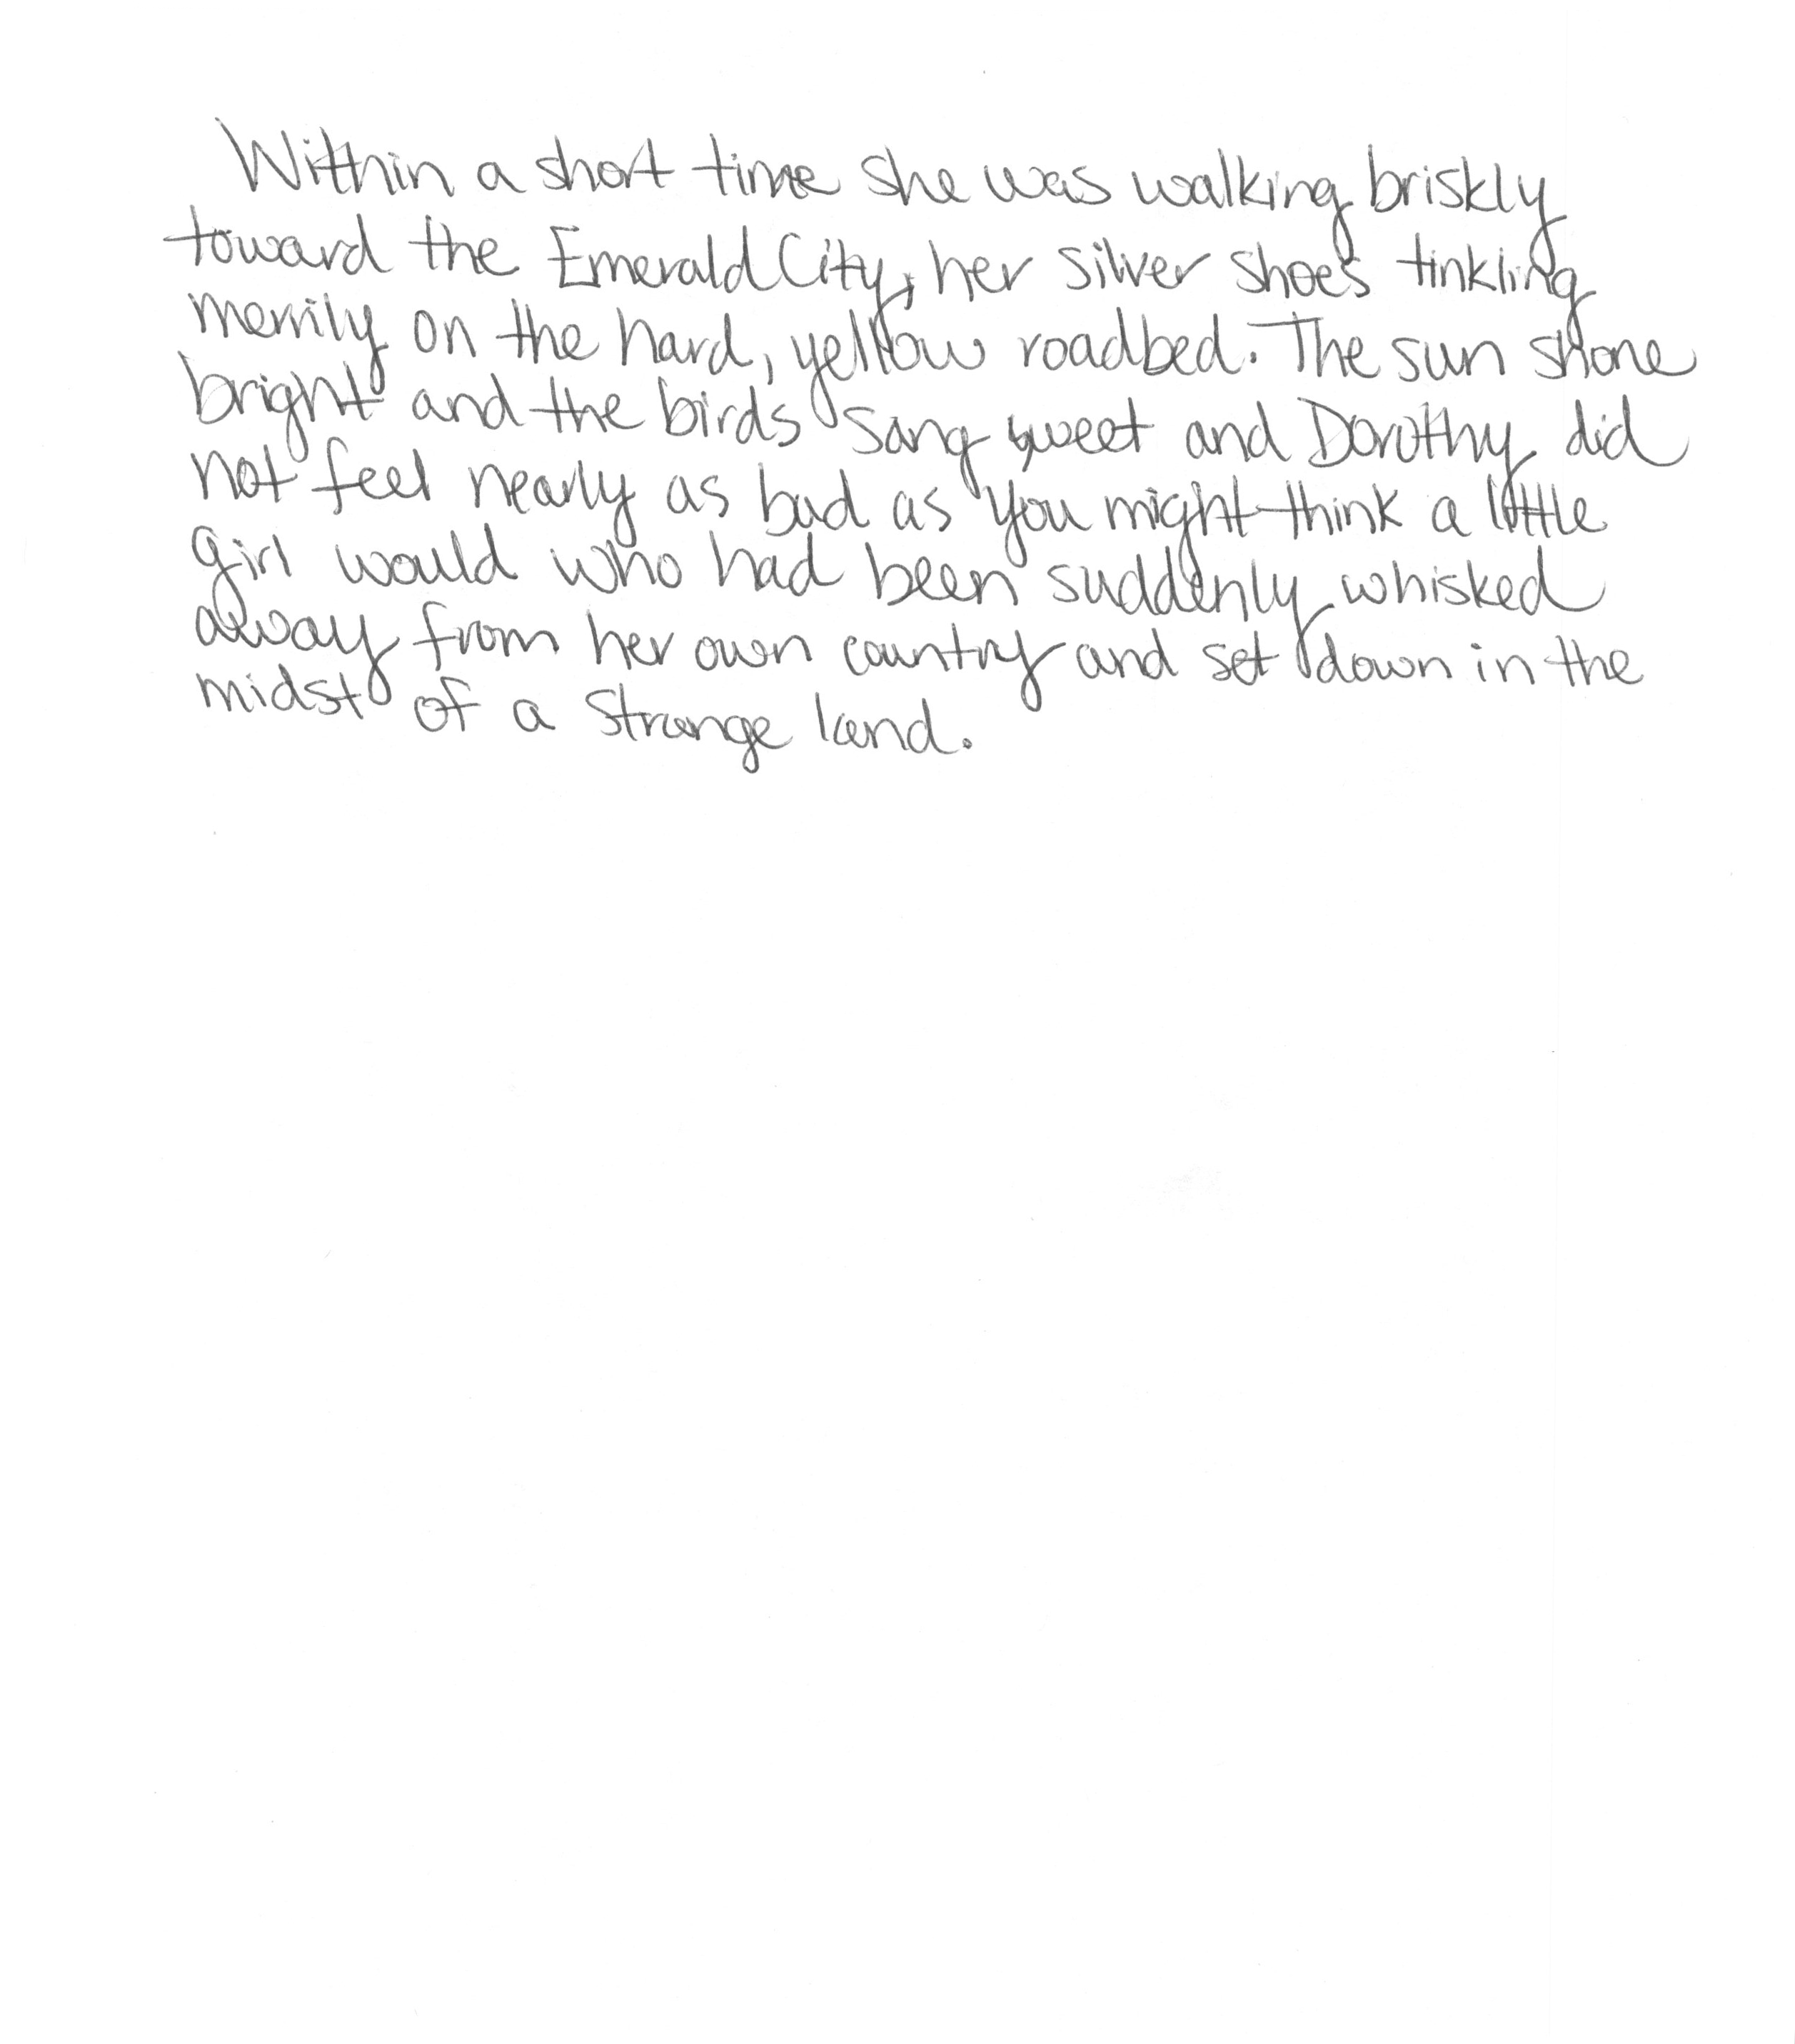 Within a short time she was walking briskly
toward the Emerald City, her silver shoes tinkling
merrily on the hard, yellow roadbed. The sun shone
bright and the birds sang sweet and Dorothy did
not feel nearly as bad as you might think a little
girl would who had been suddenly whisked
away from her own country and set down in the
midst of a strange land.